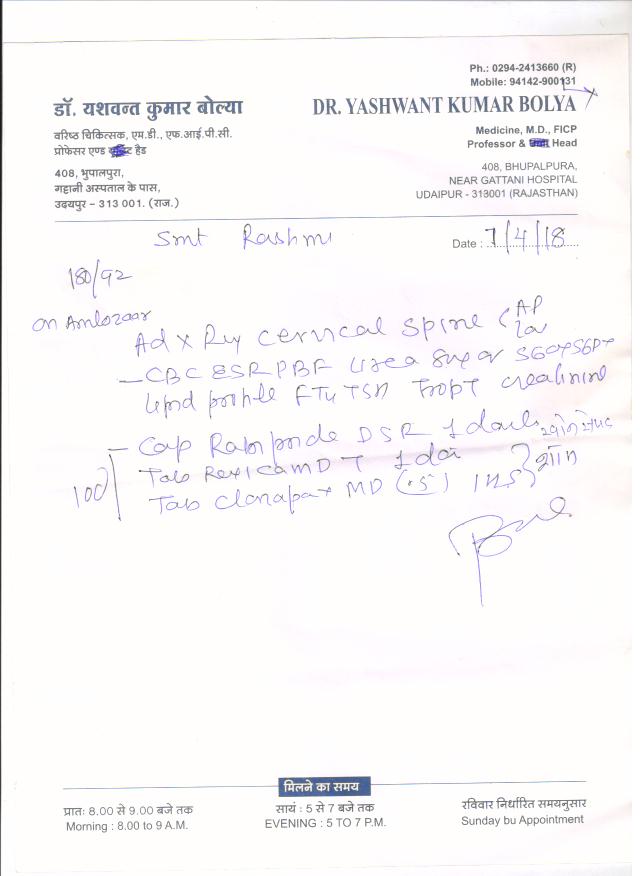 Ph.: 0294-2413660 (R)
Mobile: 94142-900131
डॉ. यशवन्त कुमार बोल्या
DR. YASHWANT KUMAR BOLYA
वरिष्ठ चिकित्सक, एम.डी., एफ.आई.पी.सी.
प्रोफेसर एण्ड हैड
Medicine, M.D., FICP
Professor & Head
408, भुपालपुरा,
गट्टानी अस्पताल के पास,
उदयपुर – 313 001. (राज.)
408, BHUPALPURA,
NEAR GATTANI HOSPITAL
UDAIPUR - 313001 (RAJASTHAN)
Smt Rashmi
Date : 7/4/18
180/92
on Amlozaar
Ad X Ray cervical spine AP
– CBC ESR PBF Urea Sugar SGOT SGPT
Lipid profile FT4 TSH TropT creatinine
– Cap DSR 1 daily
100
Tab MD T 1
Tab MD (.5) 1 HS
मिलने का समय
प्रातः 8.00 से 9.00 बजे तक
Morning : 8.00 to 9 A.M.
सायं : 5 से 7 बजे तक
EVENING : 5 TO 7 P.M.
रविवार निर्धारित समयनुसार
Sunday bu Appointment